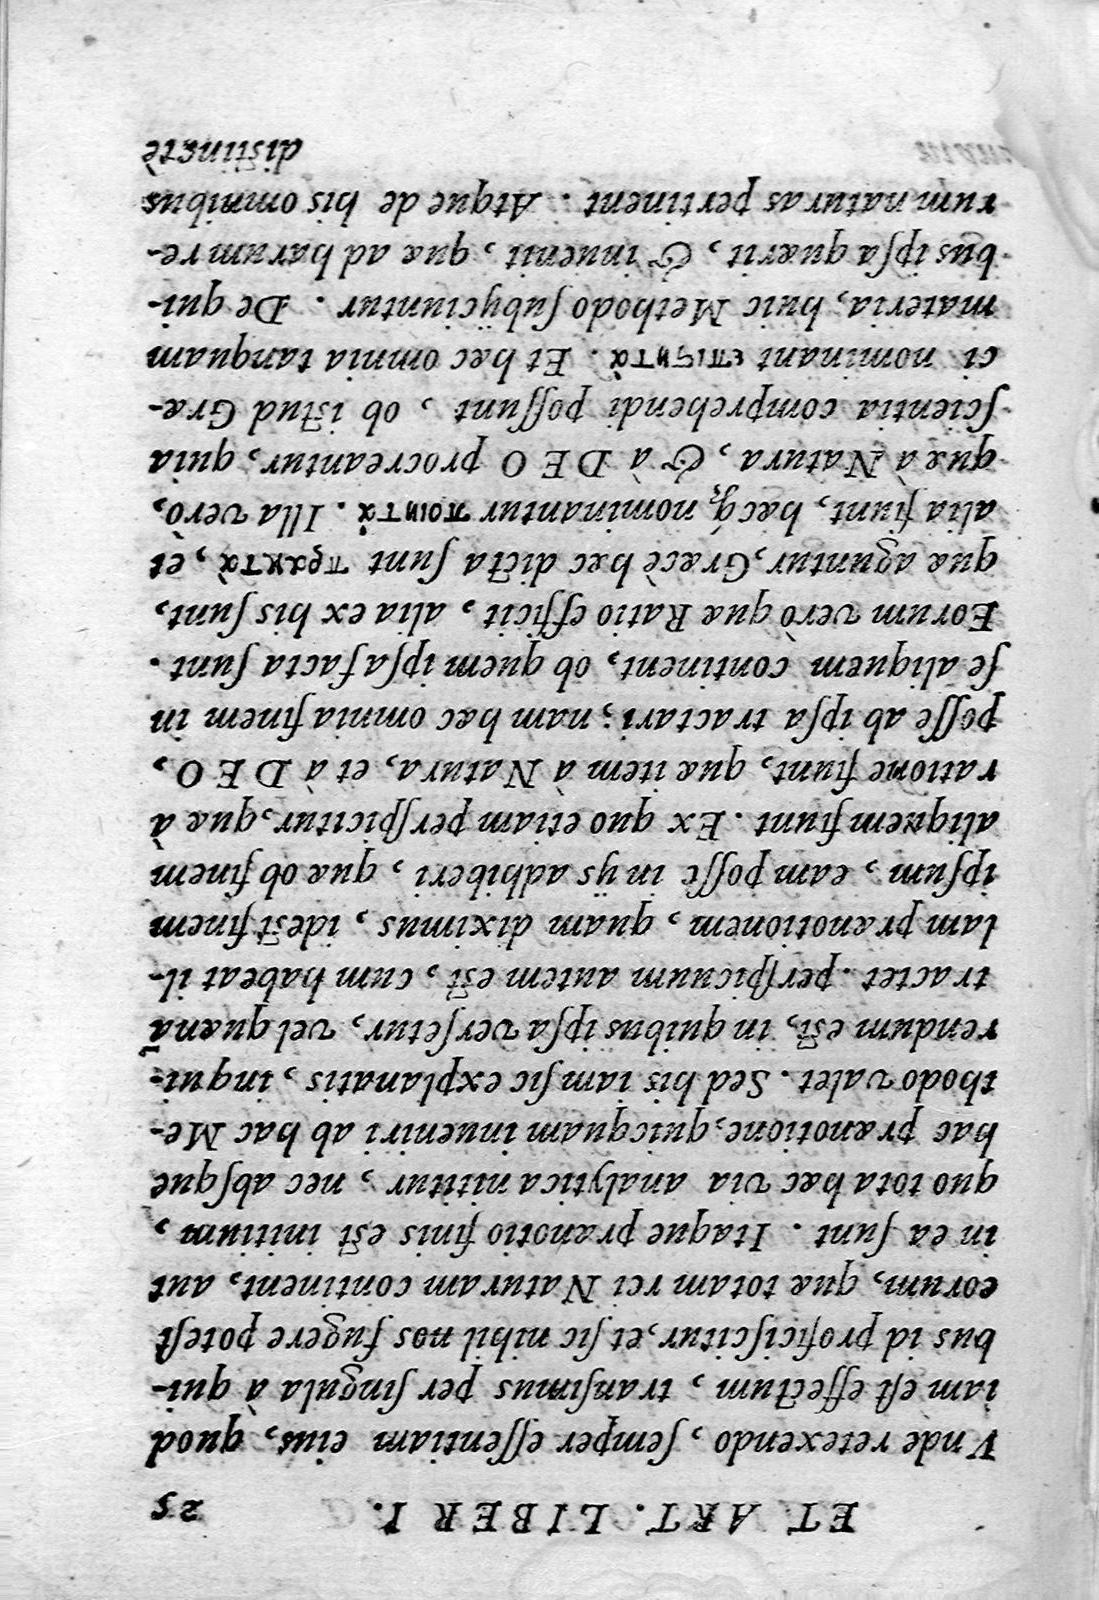 ET ART. LIBER I. 25
Vnde retexendo, ſemper eſſentiam eius, quod
iam eſt effectum, tranſimus per ſingula à qui-
bus id proficiſcitur, et ſic nihil nos fugere poteſt
eorum, quæ totam rei Naturam continent, aut
in ea ſunt. Itaque prænotio finis eſt initium,
quo tota hæc via analytica nititur, nec abſque
hac prænotione, quicquam inueniri ab hac Me-
thodo valet. Sed his iam ſic explanatis, inqui-
rendum eſt, in quibus ipſa verſetur, vel quæna
tractet. perſpicuum autem eſt, cum habeat il-
lam prænotionem, quam diximus, ideſt finem
ipſum, eam poſſe in ijs adhiberi, quæ ob finem
aliquem fiunt. Ex quo etiam perſpicitur, quæ à
ratione fiunt, quæ item à Natura, et à DEO,
poſſe ab ipſa tractari; nam hæc omnia finem in
ſe aliquem continent, ob quem ipſa facta ſunt.
Eorum verò quæ Ratio efficit, alia ex his ſunt,
quæ aguntur, Græcè hæc dicta ſunt πρακτὰ, et
alia fiunt, hæcq́; nominantur ποιητὰ. Illa verò,
quæ à Natura, & à DEO procreantur, quia
ſcientia comprehendi poſſunt, ob iſtud Græ-
ci nominant επιϛητὰ. Et hæc omnia tanquam
materia, huic Methodo ſubijciuntur. De qui-
bus ipſa quærit, & inuenit, quæ ad harum re-
rum naturas pertinent. Atque de his omnibus
diſtinctè